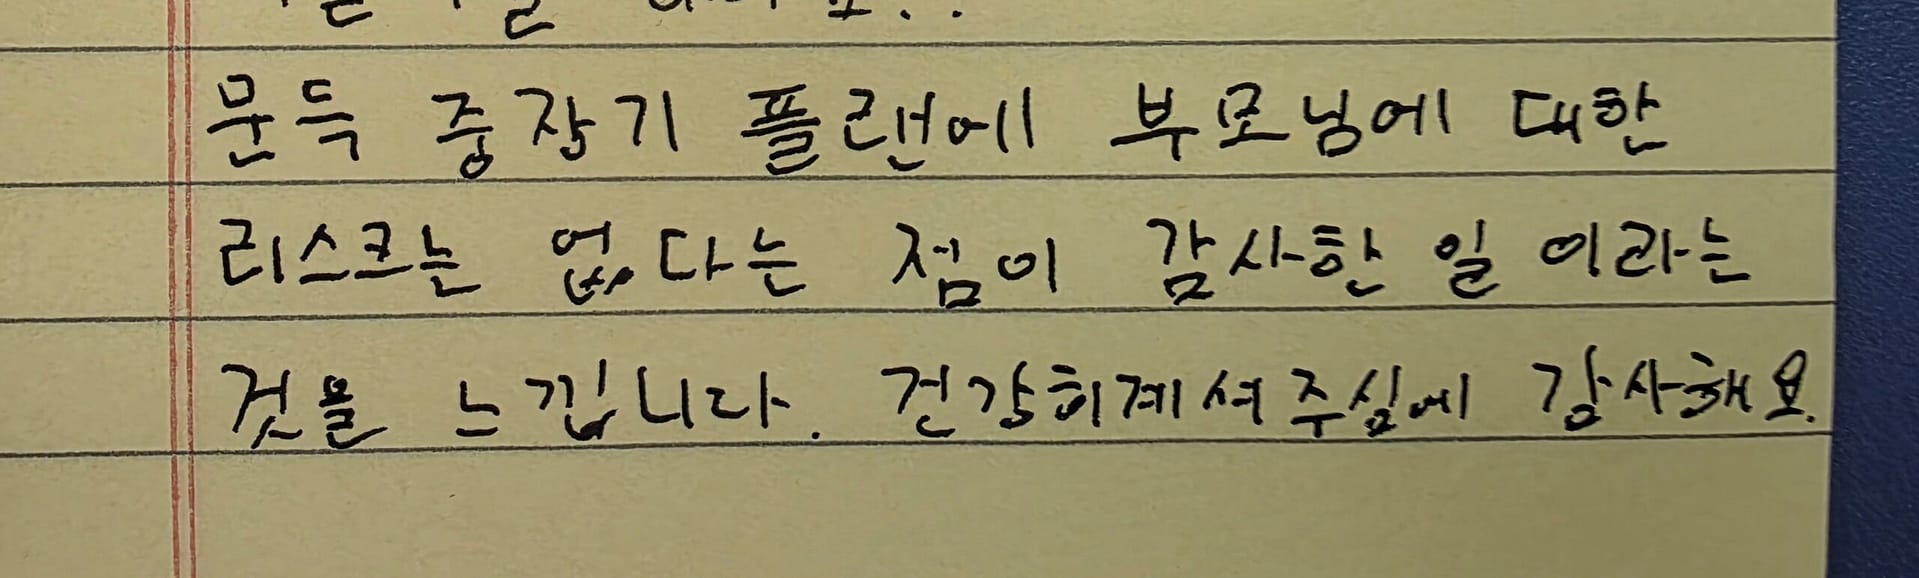 문득 중장기 플랜에 부모님에 대한
리스크는 없다는 점이 감사한 일 이라는
것을 느낍니다. 건강히계셔주심에 감사해요.